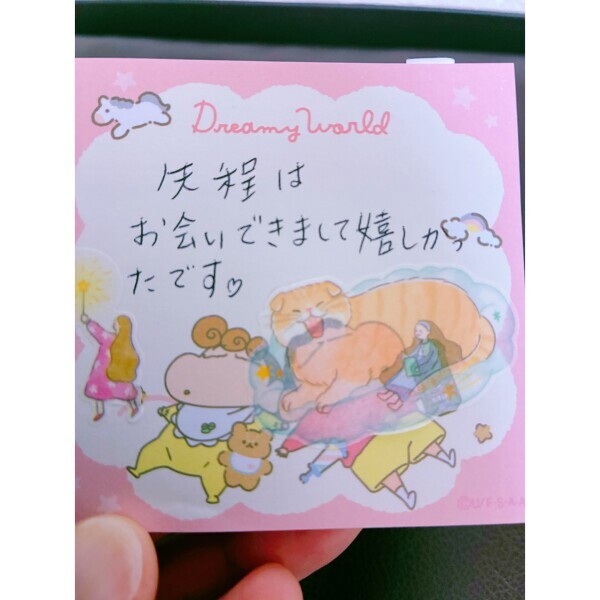 Dreamy World
先程は
お会いできまして嬉しかっ
たです♡